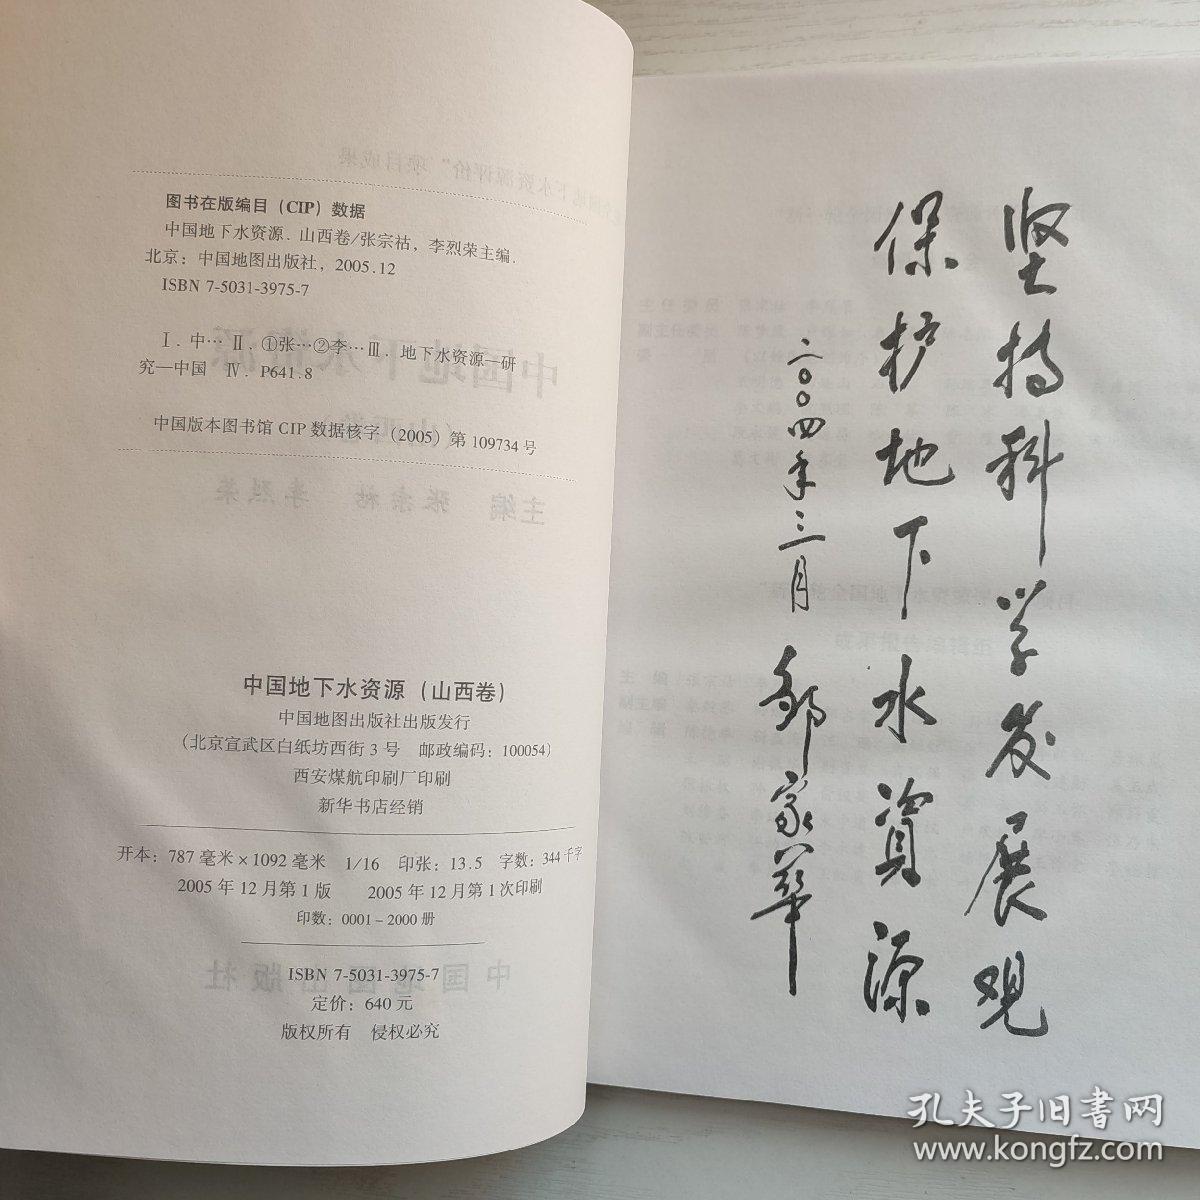 图书在版编目（CIP）数据
中国地下水资源．山西卷/张宗祜，李烈荣主编．
北京：中国地图出版社，2005.12
ISBN 7-5031-3975-7
Ⅰ．中…　Ⅱ．①张…②李…Ⅲ．地下水资源—研
究—中国　Ⅳ．P641.8
中国版本图书馆 CIP 数据核字（2005）第 109734 号
中国地下水资源（山西卷）
中国地图出版社出版发行
（北京宣武区白纸坊西街 3 号　邮政编码：100054）
西安煤航印刷厂印刷
新华书店经销
开本：787 毫米×1092 毫米　1/16　印张：13.5　字数：344 千字
2005 年 12 月第 1 版　2005 年 12 月第 1 次印刷
印数：0001－2000 册
ISBN 7-5031-3975-7
定价：640 元
版权所有　侵权必究
坚持科学发展观
保护地下水资源
二〇〇四年三月 邹家华
孔夫子旧书网
www.kongfz.com